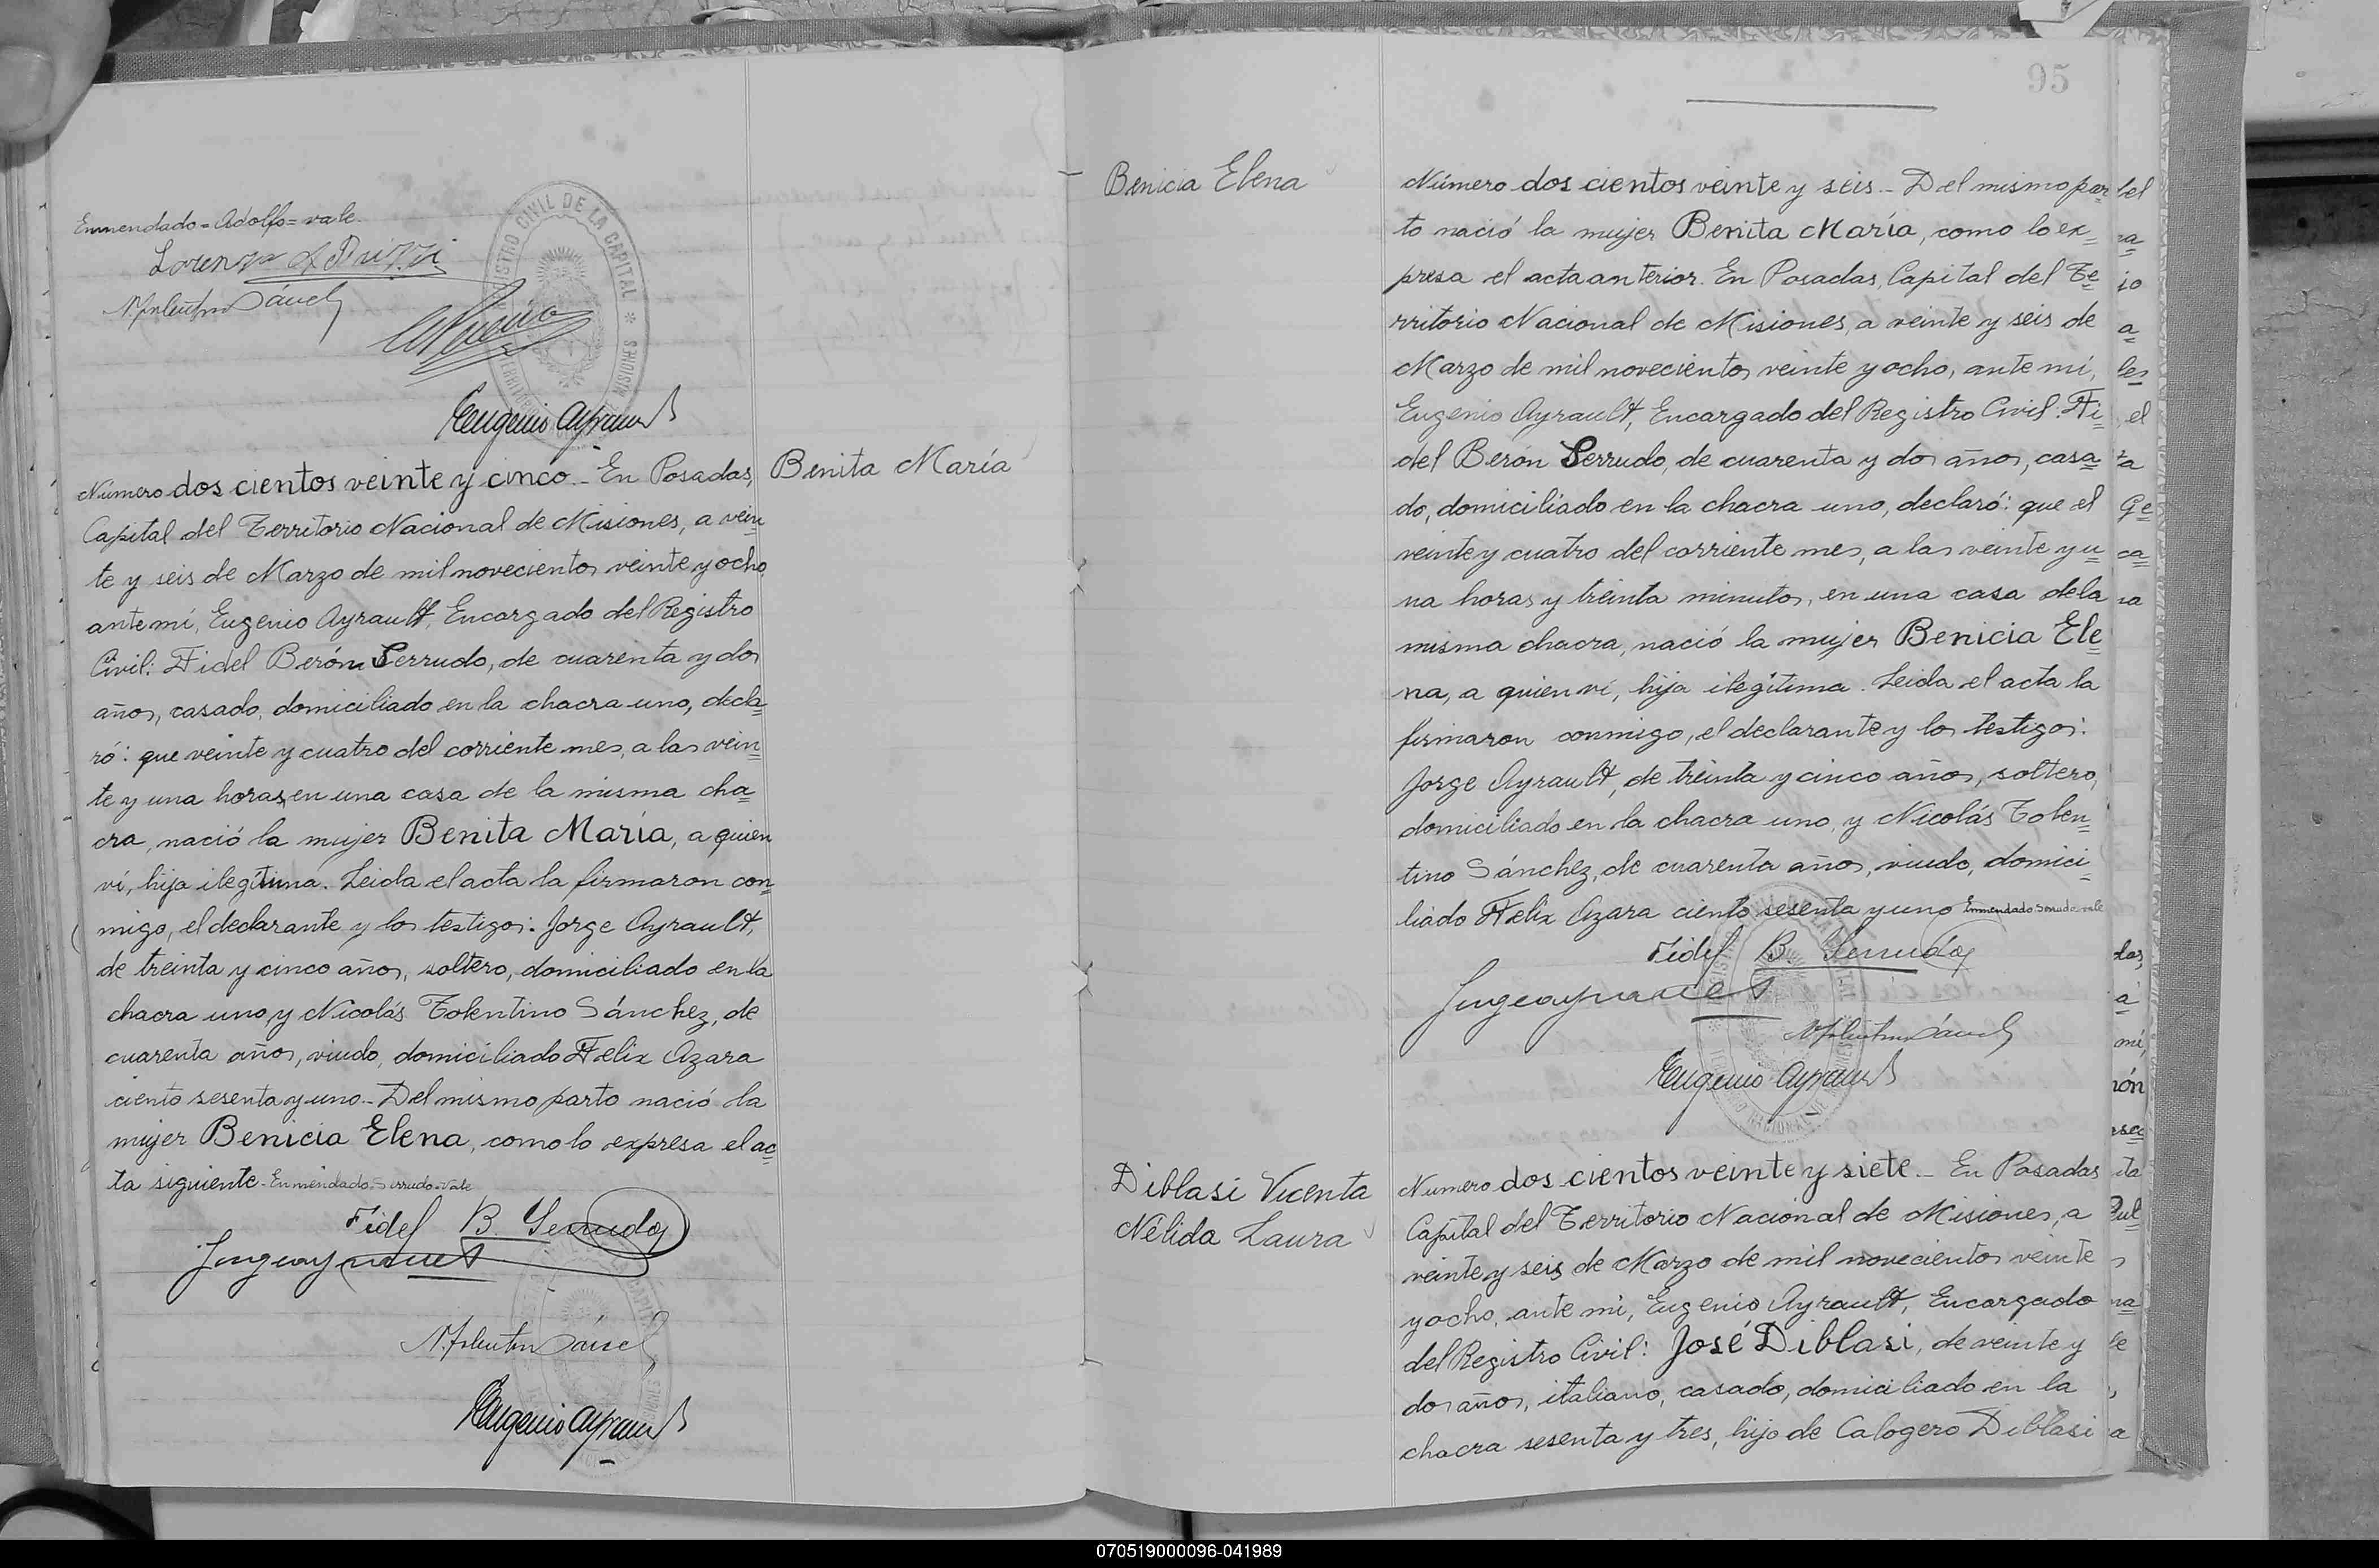 Enmendado=Adolfo=vale.
REGISTRO CIVIL DE LA CAPITAL * MISIONES
Eugenio Ayrault
Número dos cientos veinte y cinco.- En Posadas,
Benita María
Capital del Territorio Nacional de Misiones, a vein=
te y seis de Marzo de mil novecientos veinte y ocho,
ante mí, Eugenio Ayrault, Encargado del Registro
Civil: Fidel Berón Serrudo, de cuarenta y dos
años, casado, domiciliado en la chacra uno, decla=
ró: que veinte y cuatro del corriente mes, a las vein=
te y una horas, en una casa de la misma cha=
cra, nació la mujer Benita María, a quien
ví, hija ilegítima. Leida el acta la firmaron con=
migo, el declarante y los testigos: Jorge Ayrault,
de treinta y cinco años, soltero, domiciliado en la
chacra uno, y Nicolás Tolentino Sánchez, de
cuarenta años, viudo, domiciliado Félix Azara
ciento sesenta y uno.- Del mismo parto nació la
mujer Benicia Elena, como lo expresa el ac=
ta siguiente.- Enmendado=Serrudo=vale
Fidel B. Serrudo
Eugenio Ayrault
95
Benicia Elena
Número dos cientos veinte y seis.- Del mismo par=
to nació la mujer Benita María, como lo ex=
presa el acta anterior. En Posadas, Capital del Te=
rritorio Nacional de Misiones, a veinte y seis de
Marzo de mil novecientos veinte y ocho, ante mí,
Eugenio Ayrault, Encargado del Registro Civil: Fi=
del Berón Serrudo, de cuarenta y dos años, casa=
do, domiciliado en la chacra uno, declaró: que el
veinte y cuatro del corriente mes, a las veinte y u=
na horas y treinta minutos, en una casa de la
misma chacra, nació la mujer Benicia Ele=
na, a quien ví, hija ilegítima. Leida el acta la
firmaron conmigo, el declarante y los testigos:
Jorge Ayrault, de treinta y cinco años, soltero,
domiciliado en la chacra uno, y Nicolás Tolen=
tino Sánchez, de cuarenta años, viudo, domici=
liado Félix Azara ciento sesenta y uno Enmendado Serrudo vale
Fidel B. Serrudo
Eugenio Ayrault
Diblasi Vicenta
Nélida Laura
Número dos cientos veinte y siete.- En Posadas
Capital del Territorio Nacional de Misiones, a
veinte y seis de Marzo de mil novecientos veinte
y ocho, ante mí, Eugenio Ayrault, Encargado
del Registro Civil: José Diblasi, de veinte y
dos años, italiano, casado, domiciliado en la
chacra sesenta y tres, hijo de Calogero Diblasi
070519000096-041989